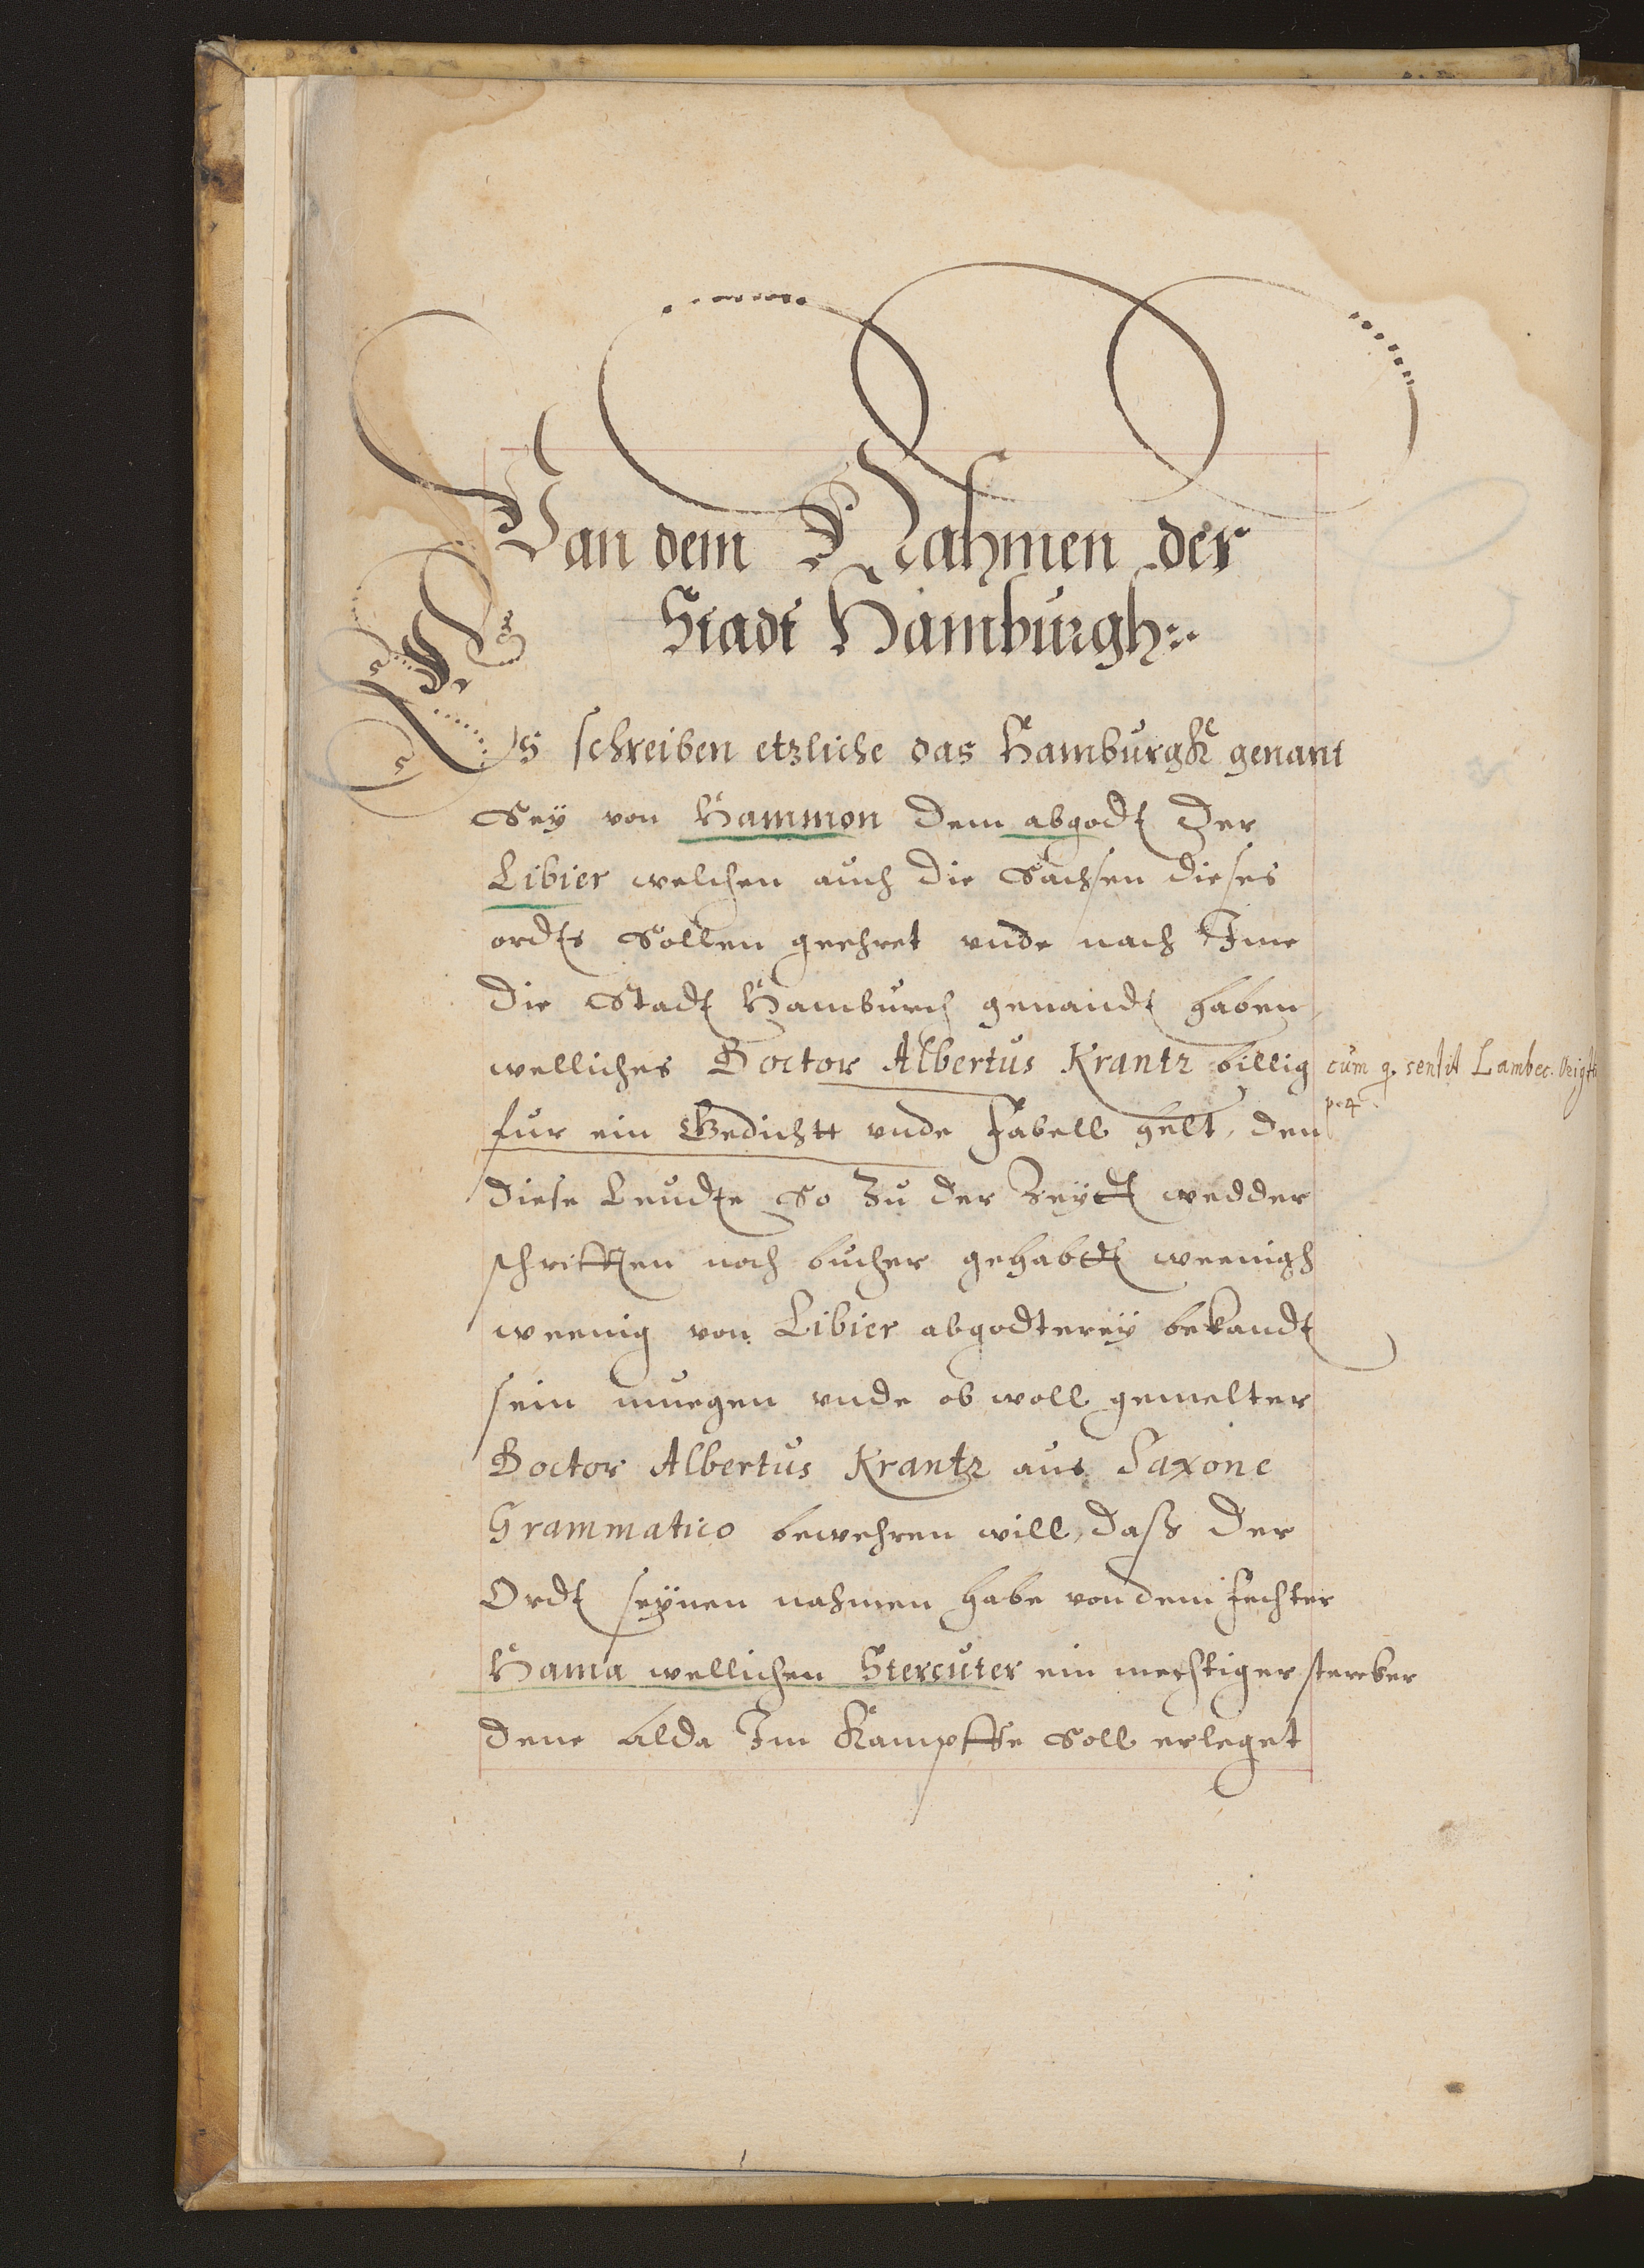 Van dem Nahmen der
Stadt Hamburgh
Es schreiben etzliche das Hamburgk genant
Sey von Hammon dem abgodt der
Libier welchen auch die Sachsen dieses
ordts Sollen geehret vnde nach Ime
die Stadt Hamburch genandt haben,
welliches Doctor Albertus Krantz billig
cum q. sentit Lambec.
p. 4
fur ein Gedichtt vnde Fabell helt, den
diese Leudte So zu der Zeytt wedder
schrifften noch bucher gehabtt weenigh
weenig von Libier abgodterey bekandt
sein muegen vnde ob woll gemelter
Doctor Albertus Krantz aus Saxone
Grammatico bewehren will, dass der
Ordt seynen nahmen habe von dem Fechter
Hama wellichen Stercuter ein mechtiger starcker
dene alda Im Kampffe Soll erleget